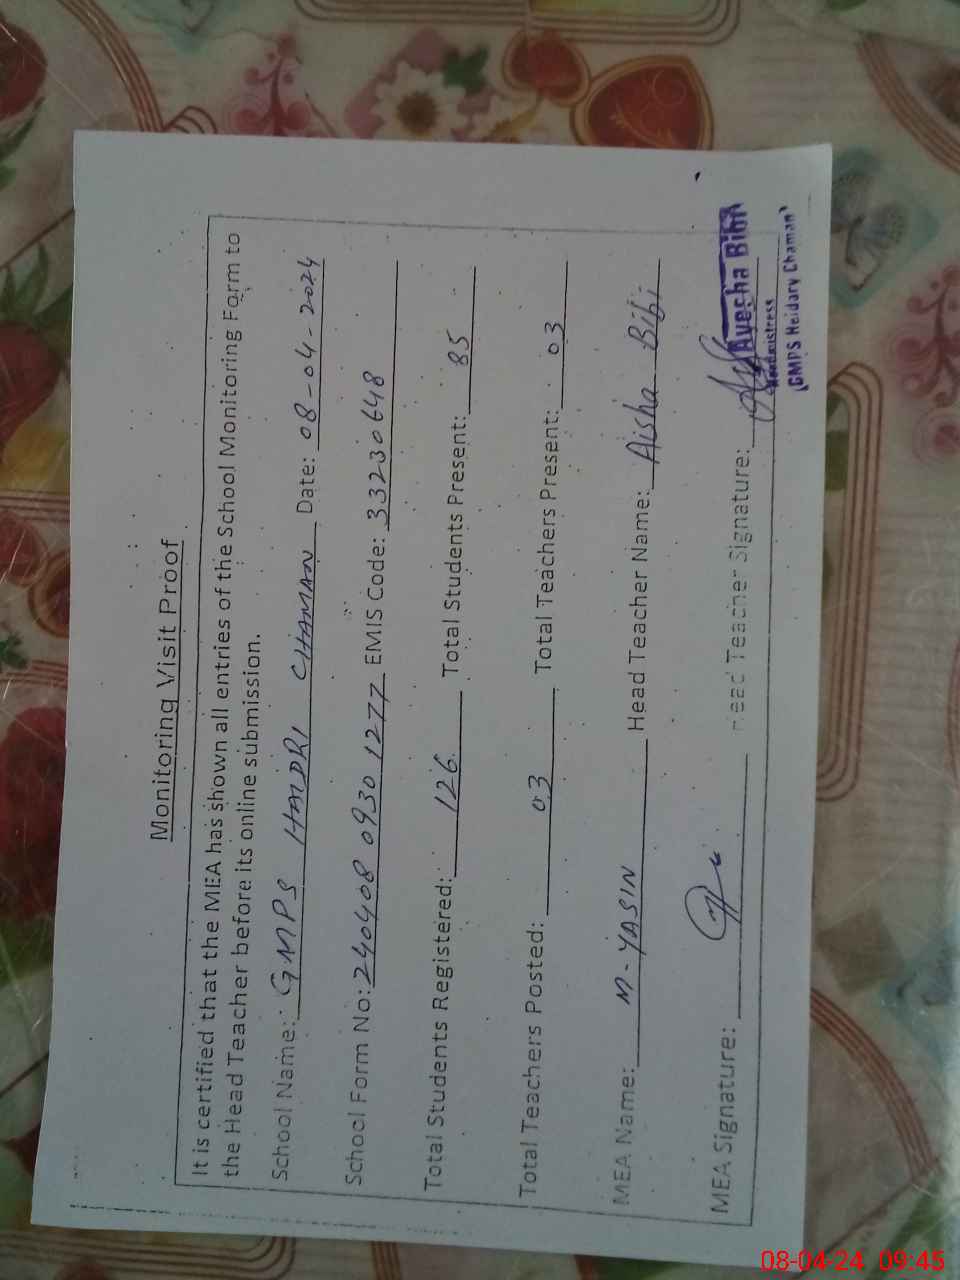 Monitoring Visit Proof
It is certified that the MEA has shown all entries of the School Monitoring Form to
the Head Teacher before its online submission.
School Name: GMPS HAIDRI CHAMAN Date: 08-04-2024
School Form No: 240408 0930 1277 EMIS Code: 33230648
Total Students Registered: 126 Total Students Present: 85
Total Teachers Posted: 03 Total Teachers Present: 03
MEA Name: M-YASIN Head Teacher Name: Aisha Bibi
MEA Signature: Head Teacher Signature:
Ayecha Bibi
Headmistress
(GMPS Heidary Chaman)
08-04-24 09:45